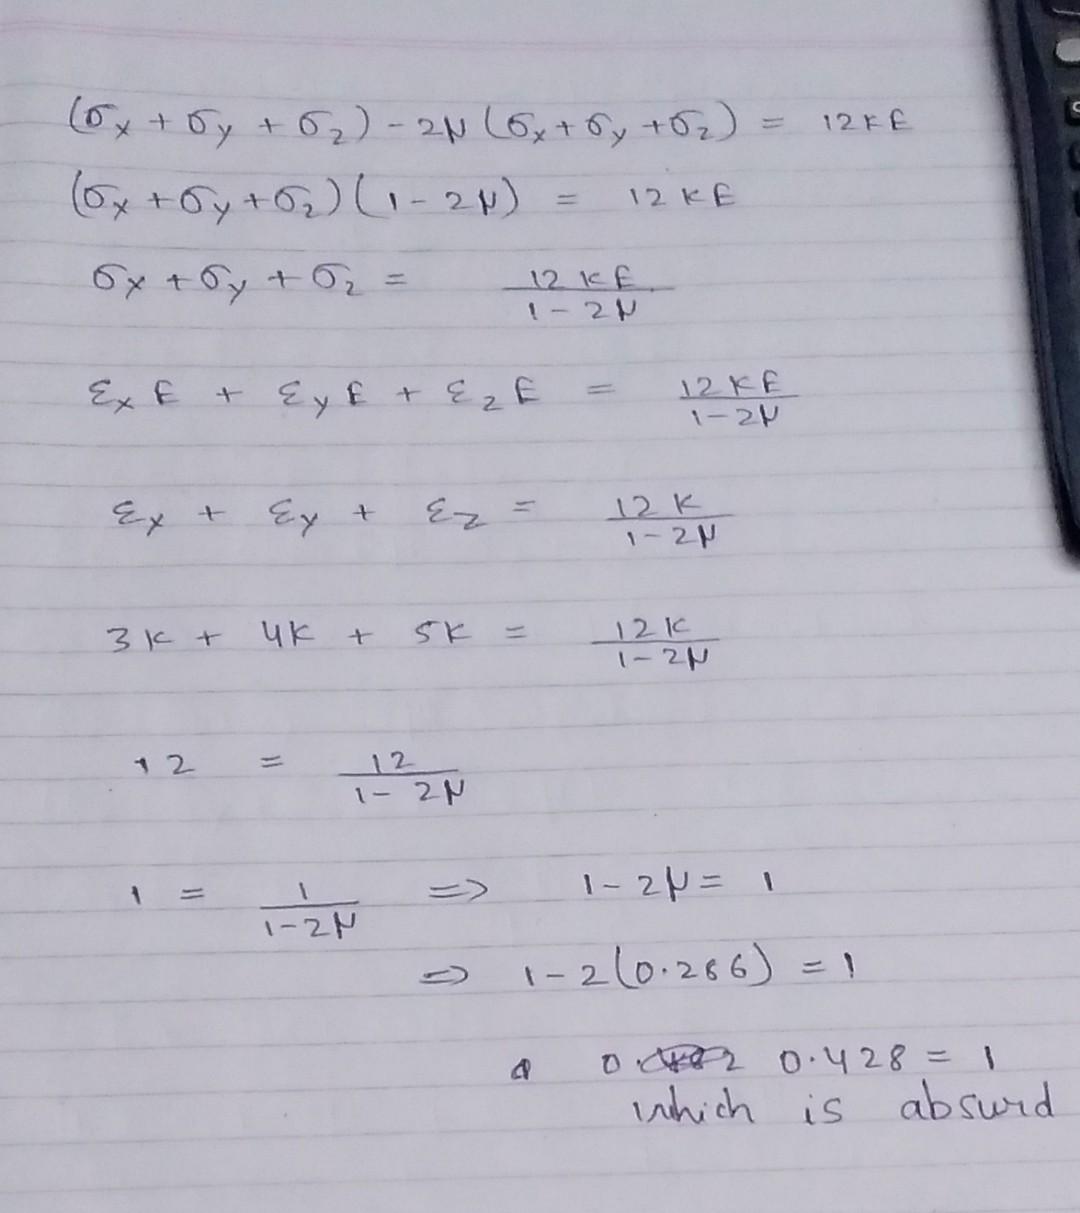 (σx + σy + σz) - 2μ (σx + σy + σz) = 12KE
(σx + σy + σz) (1 - 2μ) = 12 KE
σx + σy + σz = 12 KE / 1 - 2μ
εx E + εy E + εz E = 12 KE / 1 - 2μ
εx + εy + εz = 12 K / 1 - 2μ
3K + 4K + 5K = 12 K / 1 - 2μ
12 = 12 / 1 - 2μ
1 = 1 / 1 - 2μ ⇒ 1 - 2μ = 1
⇒ 1 - 2(0.286) = 1
0.428 = 1
which is absurd